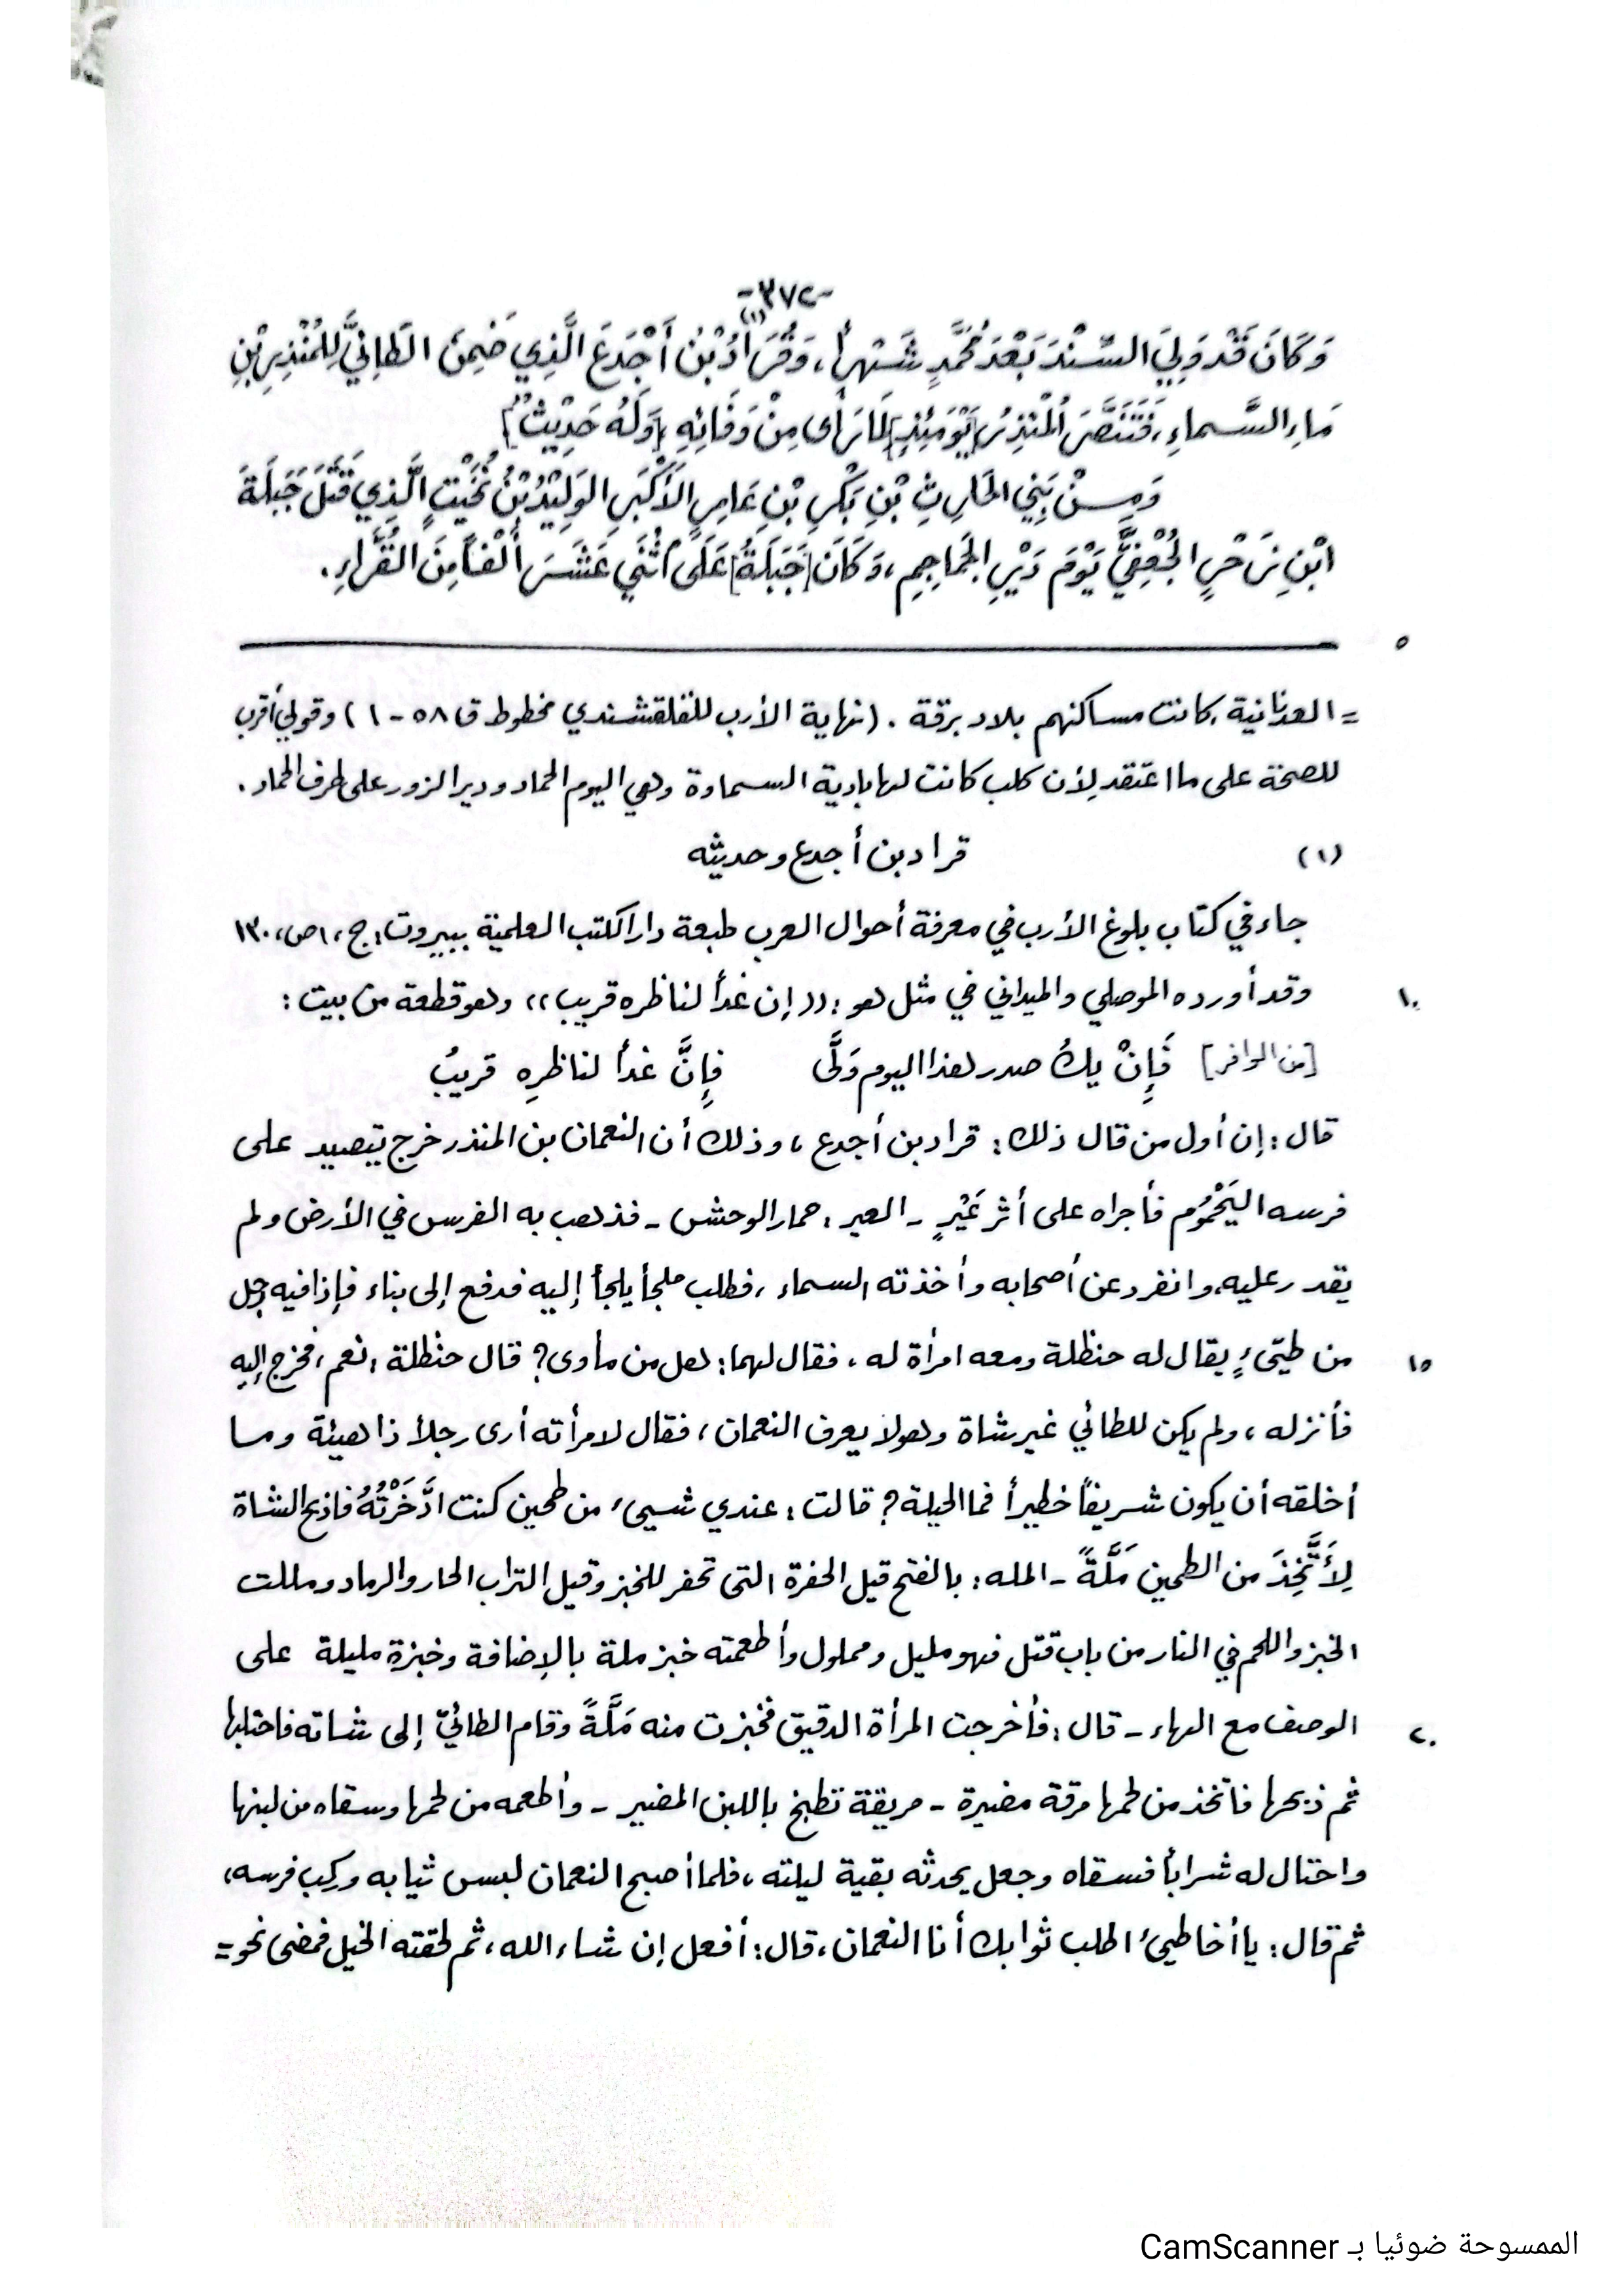 -٣٧٢-
وَكَانَ قَدْ وَلِيَ السِّنْدَ بَعْدَ مُحَمَّدٍ شَهْراً، وَقُرَادُ بْنُ أَجْدَعَ (١) الَّذِي ضَمِنَ الطَّائِيَّ لِلْمُنْذِرِ بْنِ
مَاءِ السَّماءِ، فَتَنَصَّرَ الْمُنْذِرُ [يَوْمَئِذٍ] لِمَا رَأى مِنْ وَفَائِهِ، [وَلَهُ حَدِيْثٌ]
وَمِنْ بَنِي الحَارِثِ بْنِ بَكْرِ بْنِ عَامِرِ الأَكْبَرِ الوَلِيْدُ بْنُ نُخَيْتٍ الَّذِي قَتَلَ جَبَلَةَ
ابْنِ زَحْرٍ الجُعْفِيَّ يَوْمَ دَيْرِ الجَمَاجِمِ، وَكَانَ [جَبَلَةُ] عَلَى اثْنَي عَشَرَ أَلْفاً مِنَ القُرَّاءِ.
٥
= العدنانية، كانت مساكنهم بلاد برقة. (نهاية الأرب للقلقشندي مخطوط ق ٥٨ - ١) وقولي أقرب
للصحة على ما اعتقد لأن كلب كانت لها بادية السماوة وهي اليوم الحماد ودير الزور على طرف الحماد.
(١) قراد بن أجدع وحديثه
جاء في كتاب بلوغ الأرب في معرفة أحوال العرب طبعة دار الكتب العلمية ببيروت: ج، ١ ص، ١٣٠
وقد أورده الموصلي والميداني في مثل هو: ((إن غداً لناظره قريب)) وهو قطعة من بيت: ١٠
[من الوافر] فَإِنْ يكُ صدر هذا اليوم وَلَّى فإِنَّ غداً لناظرِهِ قريبُ
قال: إن أول من قال ذلك: قراد بن أجدع، وذلك أن النعمان بن المنذر خرج يتصيد على
فرسه اليَحْمُوم فأجراه على أثر عَيْرٍ - العير: حمار الوحش - فذهب به الفرس في الأرض ولم
يقدر عليه، وانفرد عن أصحابه وأخذته السماء، فطلب ملجأ يلجأ إليه فدفع إلى بناء فإذا فيه رجل
من طيّىءٍ يقال له حنظلة ومعه امرأة له، فقال لهما: هل من مأوى؟ قال حنظلة: نعم، فخرج إليه ١٥
فأنزله، ولم يكن للطائي غير شاة وهو لا يعرف النعمان، فقال لامرأته أرى رجلاً ذا هيئة وما
أخلقه أن يكون شريفاً خطيراً فما الحيلة؟ قالت: عندي شيىء من طحين كنت ادَّخَرْتُهُ فاذبح الشاة
لِأَتَّخِذَ من الطحين مَلَّةً - المله: بالفتح قيل الحفرة التى تحفر للخبز وقيل التراب الحار والرماد ومللت
الخبز واللحم في النار من باب قتل فهو مليل ومملول وأطعمته خبز ملة بالإضافة وخبزة مليلة على
الوصف مع الهاء - قال: فأخرجت المرأة الدقيق فخبزت منه مَلَّةً وقام الطائيّ إلى شاته فاحتلبها ٢٠
ثم ذبحها فاتخذ من لحمها مرقة مضيرة - مريقة تطبخ باللبن المضير - وأطعمه من لحمها وسقاه من لبنها
واحتال له شراباً فسقاه وجعل يحدثه بقية ليلته، فلما أصبح النعمان لبس ثيابه وركب فرسه،
ثم قال: يا أخا طيىء اطلب ثوابك أنا النعمان، قال: أفعل إن شاء الله، ثم لحقته الخيل فمضى نحو =
الممسوحة ضوئيا بـ CamScanner